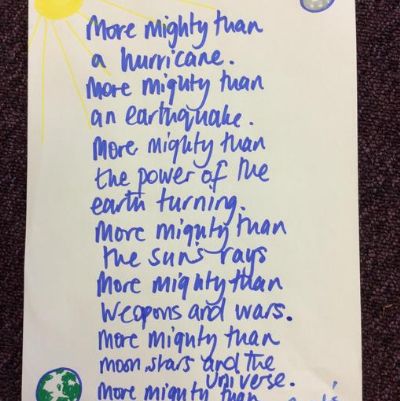 More mighty than
a hurricane.
More mighty than
an earthquake.
More mighty than
the power of the
earth turning.
More mighty than
the sun's rays
More mighty than
weapons and wars.
More mighty than
moon, stars and the
universe.
More mighty than